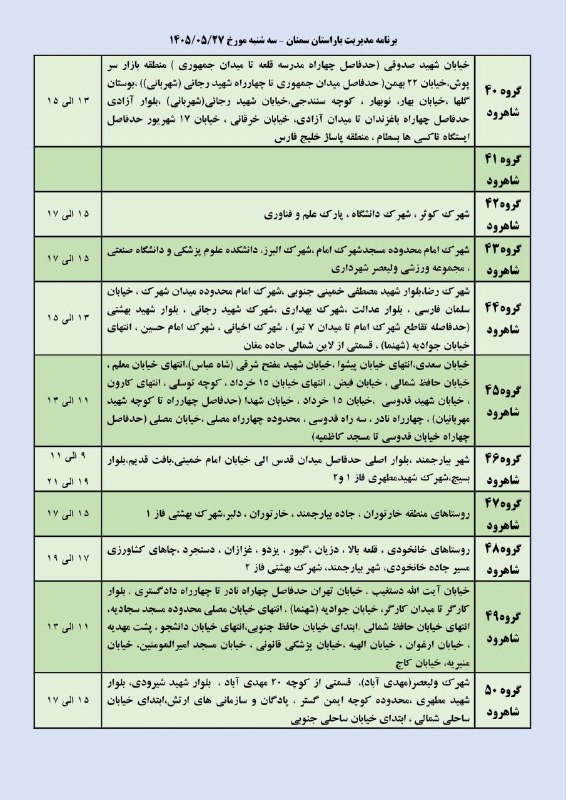 برنامه مدیریت باراستان سمنان - سه شنبه مورخ ۱۴۰۵/۰۵/۲۷
گروه ۴۰
شاهرود
خیابان شهید صدوقی (حدفاصل چهاراه مدرسه قلعه تا میدان جمهوری ) منطقه بازار سر
پوش،خیابان ۲۲ بهمن( حدفاصل میدان جمهوری تا چهارراه شهید رجائی (شهربانی)) ،بوستان
گلها ،خیابان بهار، نوبهار ، کوچه سنندجی،خیابان شهید رجائی(شهربانی) ،بلوار آزادی
حدفاصل چهاراه باغزندان تا میدان آزادی، خیابان خرقانی ، خیابان ۱۷ شهریور حدفاصل
ایستگاه تاکسی ها بسطام ، منطقه پاساژ خلیج فارس
۱۳ الی ۱۵
گروه ۴۱
شاهرود
گروه۴۲
شاهرود
شهرک کوثر ، شهرک دانشگاه ، پارک علم و فناوری
۱۵ الی ۱۷
گروه۴۳
شاهرود
شهرک امام محدوده مسجدشهرک امام ،شهرک البرز، دانشکده علوم پزشکی و دانشگاه صنعتی
، مجموعه ورزشی ولیعصر شهرداری
۱۵ الی ۱۷
گروه۴۴
شاهرود
شهرک رضا،بلوار شهید مصطفی خمینی جنوبی ،شهرک امام محدوده میدان شهرک ، خیابان
سلمان فارسی ، بلوار عدالت ،شهرک بهداری ،شهرک شهید رجائی ، بلوار شهید بهشتی
(حدفاصله تقاطع شهرک امام تا میدان ۷ تیر) ، شهرک اخیانی ، شهرک امام حسین ، انتهای
خیابان جوادیه (شهنما) ، قسمتی از لاین شمالی جاده مغان
۱۳ الی ۱۵
گروه۴۵
شاهرود
خیابان سعدی،انتهای خیابان پیشوا ،خیابان شهید مفتح شرقی (شاه عباس)،انتهای خیابان معلم ،
خیابان حافظ شمالی ، خیابان فیض ، انتهای خیابان ۱۵ خرداد ، کوچه توسلی ، انتهای کارون
، خیابان شهید قدوسی ، خیابان ۱۵ خرداد ، خیابان شهدا (حدفاصل چهارراه تا کوچه شهید
مهربانیان) ، چهارراه نادر ، سه راه قدوسی ، محدوده چهارراه مصلی ،خیابان مصلی (حدفاصل
چهاراه خیابان قدوسی تا مسجد کاظمیه)
۱۱ الی ۱۳
گروه۴۶
شاهرود
شهر بیارجمند ،بلوار اصلی حدفاصل میدان قدس الی خیابان امام خمینی،بافت قدیم،بلوار
بسیج،شهرک شهیدمطهری فاز ۱ و۲
۹ الی ۱۱
۱۹ الی ۲۱
گروه۴۷
شاهرود
روستاهای منطقه خارتوران ، جاده بیارجمند ، خارتوران ، دلبر،شهرک بهشتی فاز ۱
۱۵ الی ۱۷
گروه۴۸
شاهرود
روستاهای خانخودی ، قلعه بالا ، دزیان ،گیور ، یزدو ، غزازان ، دستجرد ،چاهای کشاورزی
مسیر جاده خانخودی، شهر بیارجمند، شهرک بهشتی فاز ۲
۱۷ الی ۱۹
گروه۴۹
شاهرود
خیابان آیت الله دستغیب . خیابان تهران حدفاصل چهاراه نادر تا چهارراه دادگستری . بلوار
کارگر تا میدان کارگر، خیابان جوادیه (شهنما) . انتهای خیابان مصلی محدوده مسجد سجادیه،
انتهای خیابان حافظ شمالی .ابتدای خیابان حافظ جنوبی،انتهای خیابان دانشجو . پشت مهدیه
. خیابان ارغوان ، خیابان الهیه ،خیابان پزشکی قانونی ، خیابان مسجد امیرالمومنین، خیابان
منیریه، خیابان کاج
۱۱ الی ۱۳
گروه ۵۰
شاهرود
شهرک ولیعصر(مهدی آباد)، قسمتی از کوچه ۲۰ مهدی آباد ، بلوار شهید شیرودی، بلوار
شهید مطهری ،محدوده کوچه ایمن گستر ، پادگان و سازمانی های ارتش،ابتدای خیابان
ساحلی شمالی ، ابتدای خیابان ساحلی جنوبی
۱۵ الی ۱۷